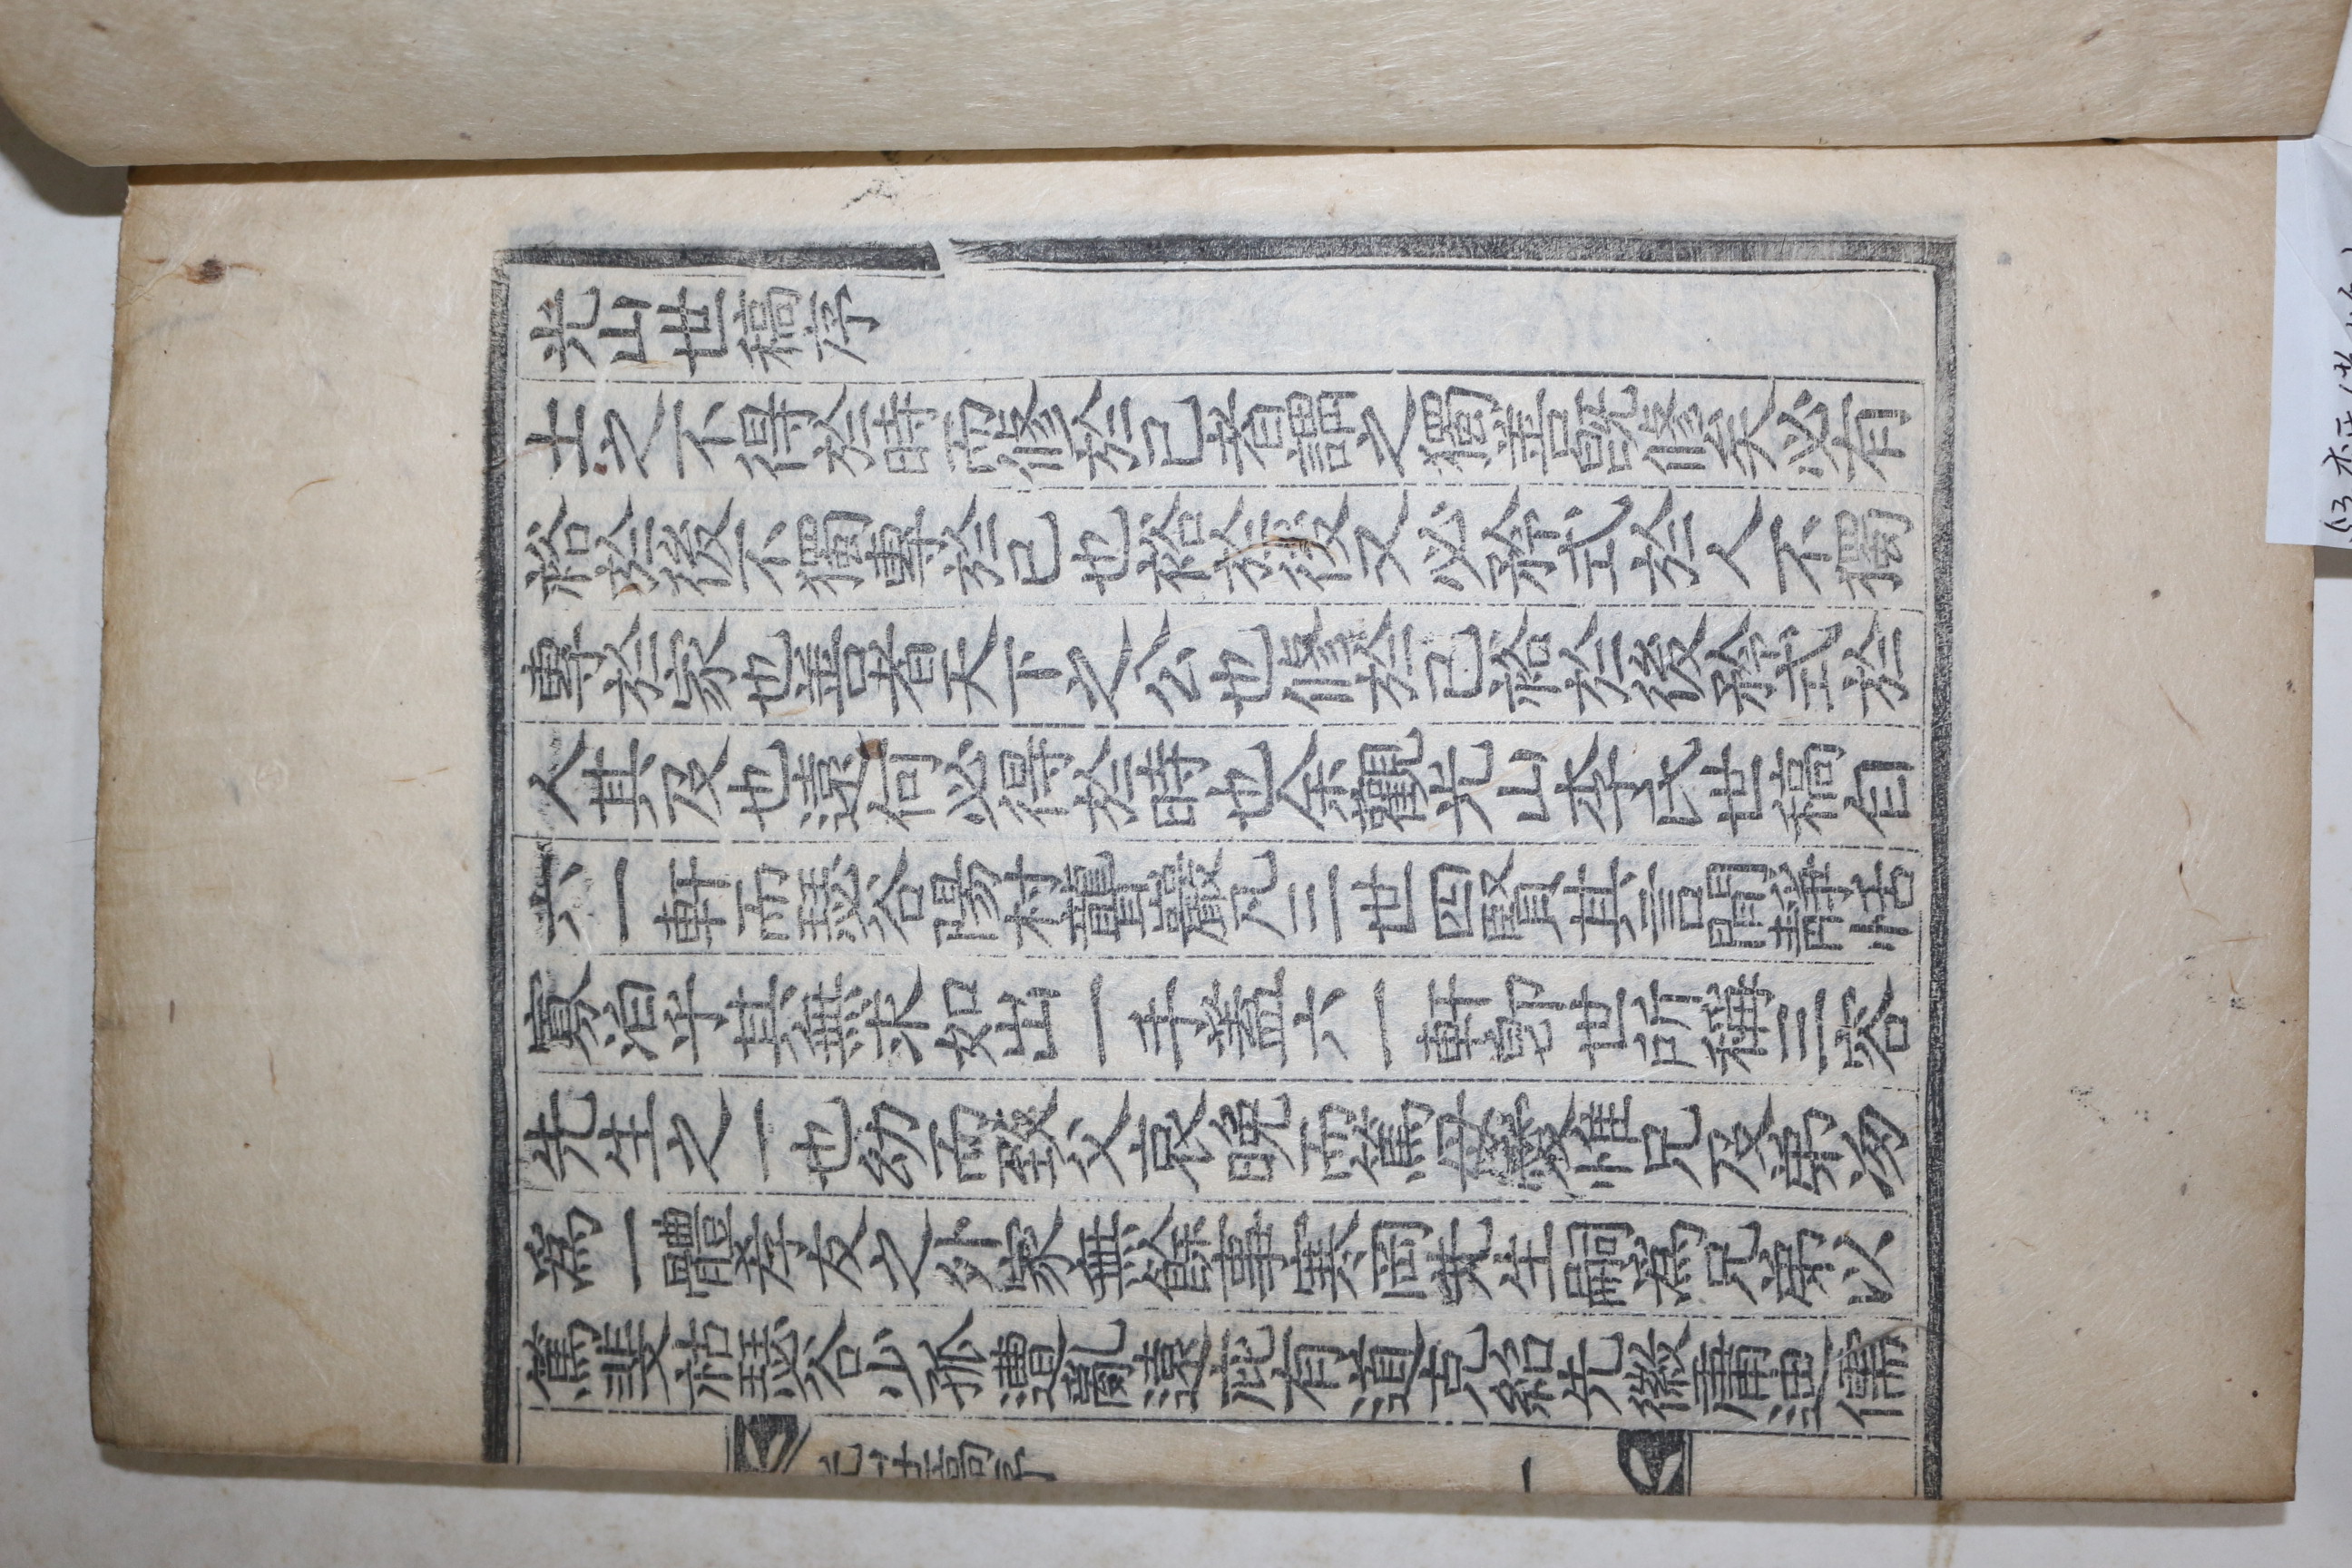 光山世稿序
士之不得於時而修於己者謂之獨善旣修矣必有
裕於後不獨專於已也裕於後又必矜式於人不獨
專於家也善者天下之公也修於已裕於後矜式於
人其及也遠何必得於時也余觀光山李氏世稿自
六一軒而瑟谷陽村聾巖凡三世四賢其言閒靜恬
寡泊乎其無求如出一手蓋六一軒卽世所稱三容
先生之一也幼而致父哀晩而篤母愛惟兄及弟沕
爲一體孝友之外家無餘事寒岡先生嗣爲兄弟以
篤斐祜瑟谷少孤遭亂遠庇有道克紹先徽庸迪儒
光山世稿序
一